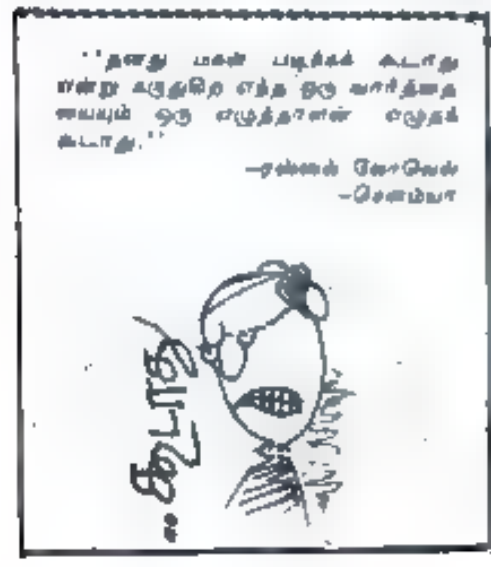 "தனது மகன் படிக்கக் கூடாது
என்று கருதுகிற எந்த ஒரு வார்த்தை
யையும் ஒரு எழுத்தாளன் எழுதக்
கூடாது."
... கூடாது